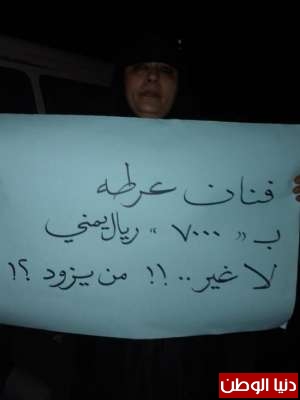 فنان عرطه
ب « ٧٠٠٠ » ريال يمني
لا غير..!! من يزود ؟!
دنيا الوطن